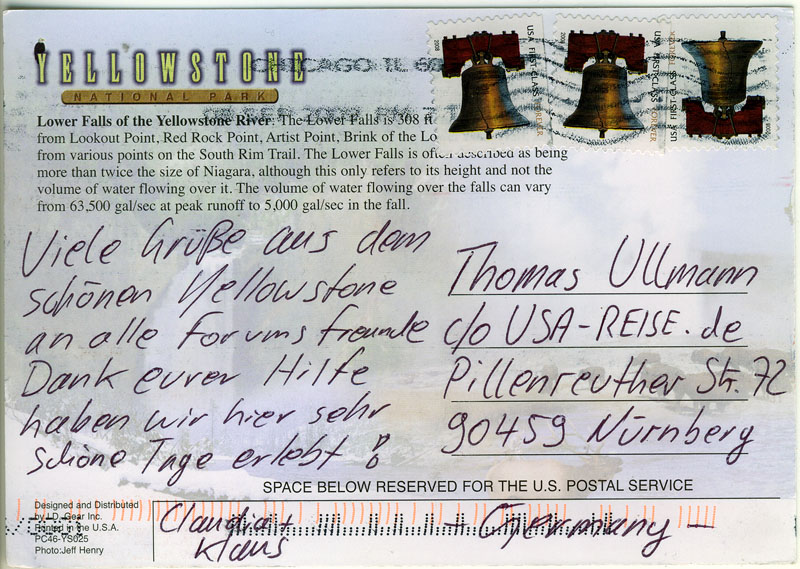 YELLOWSTONE
NATIONAL PARK
CHICAGO IL
USA FIRST-CLASS FOREVER
USA FIRST-CLASS FOREVER
USA FIRST-CLASS FOREVER
2008
2008
2008
Lower Falls of the Yellowstone River: The Lower Falls is 308 ft
from Lookout Point, Red Rock Point, Artist Point, Brink of the Lo
from various points on the South Rim Trail. The Lower Falls is often described as being
more than twice the size of Niagara, although this only refers to its height and not the
volume of water flowing over it. The volume of water flowing over the falls can vary
from 63,500 gal/sec at peak runoff to 5,000 gal/sec in the fall.
Viele Grüße aus dem
schönen Yellowstone
an alle Forumsfreunde
Dank eurer Hilfe
haben wir hier sehr
schöne Tage erlebt !
Claudia +
Klaus
Thomas Ullmann
c/o USA-REISE.de
Pillenreuther Str. 72
90459 Nürnberg
SPACE BELOW RESERVED FOR THE U.S. POSTAL SERVICE
- Germany -
Designed and Distributed
by I.D. Gear Inc.
Printed in the U.S.A.
PC46-YS025
Photo:Jeff Henry